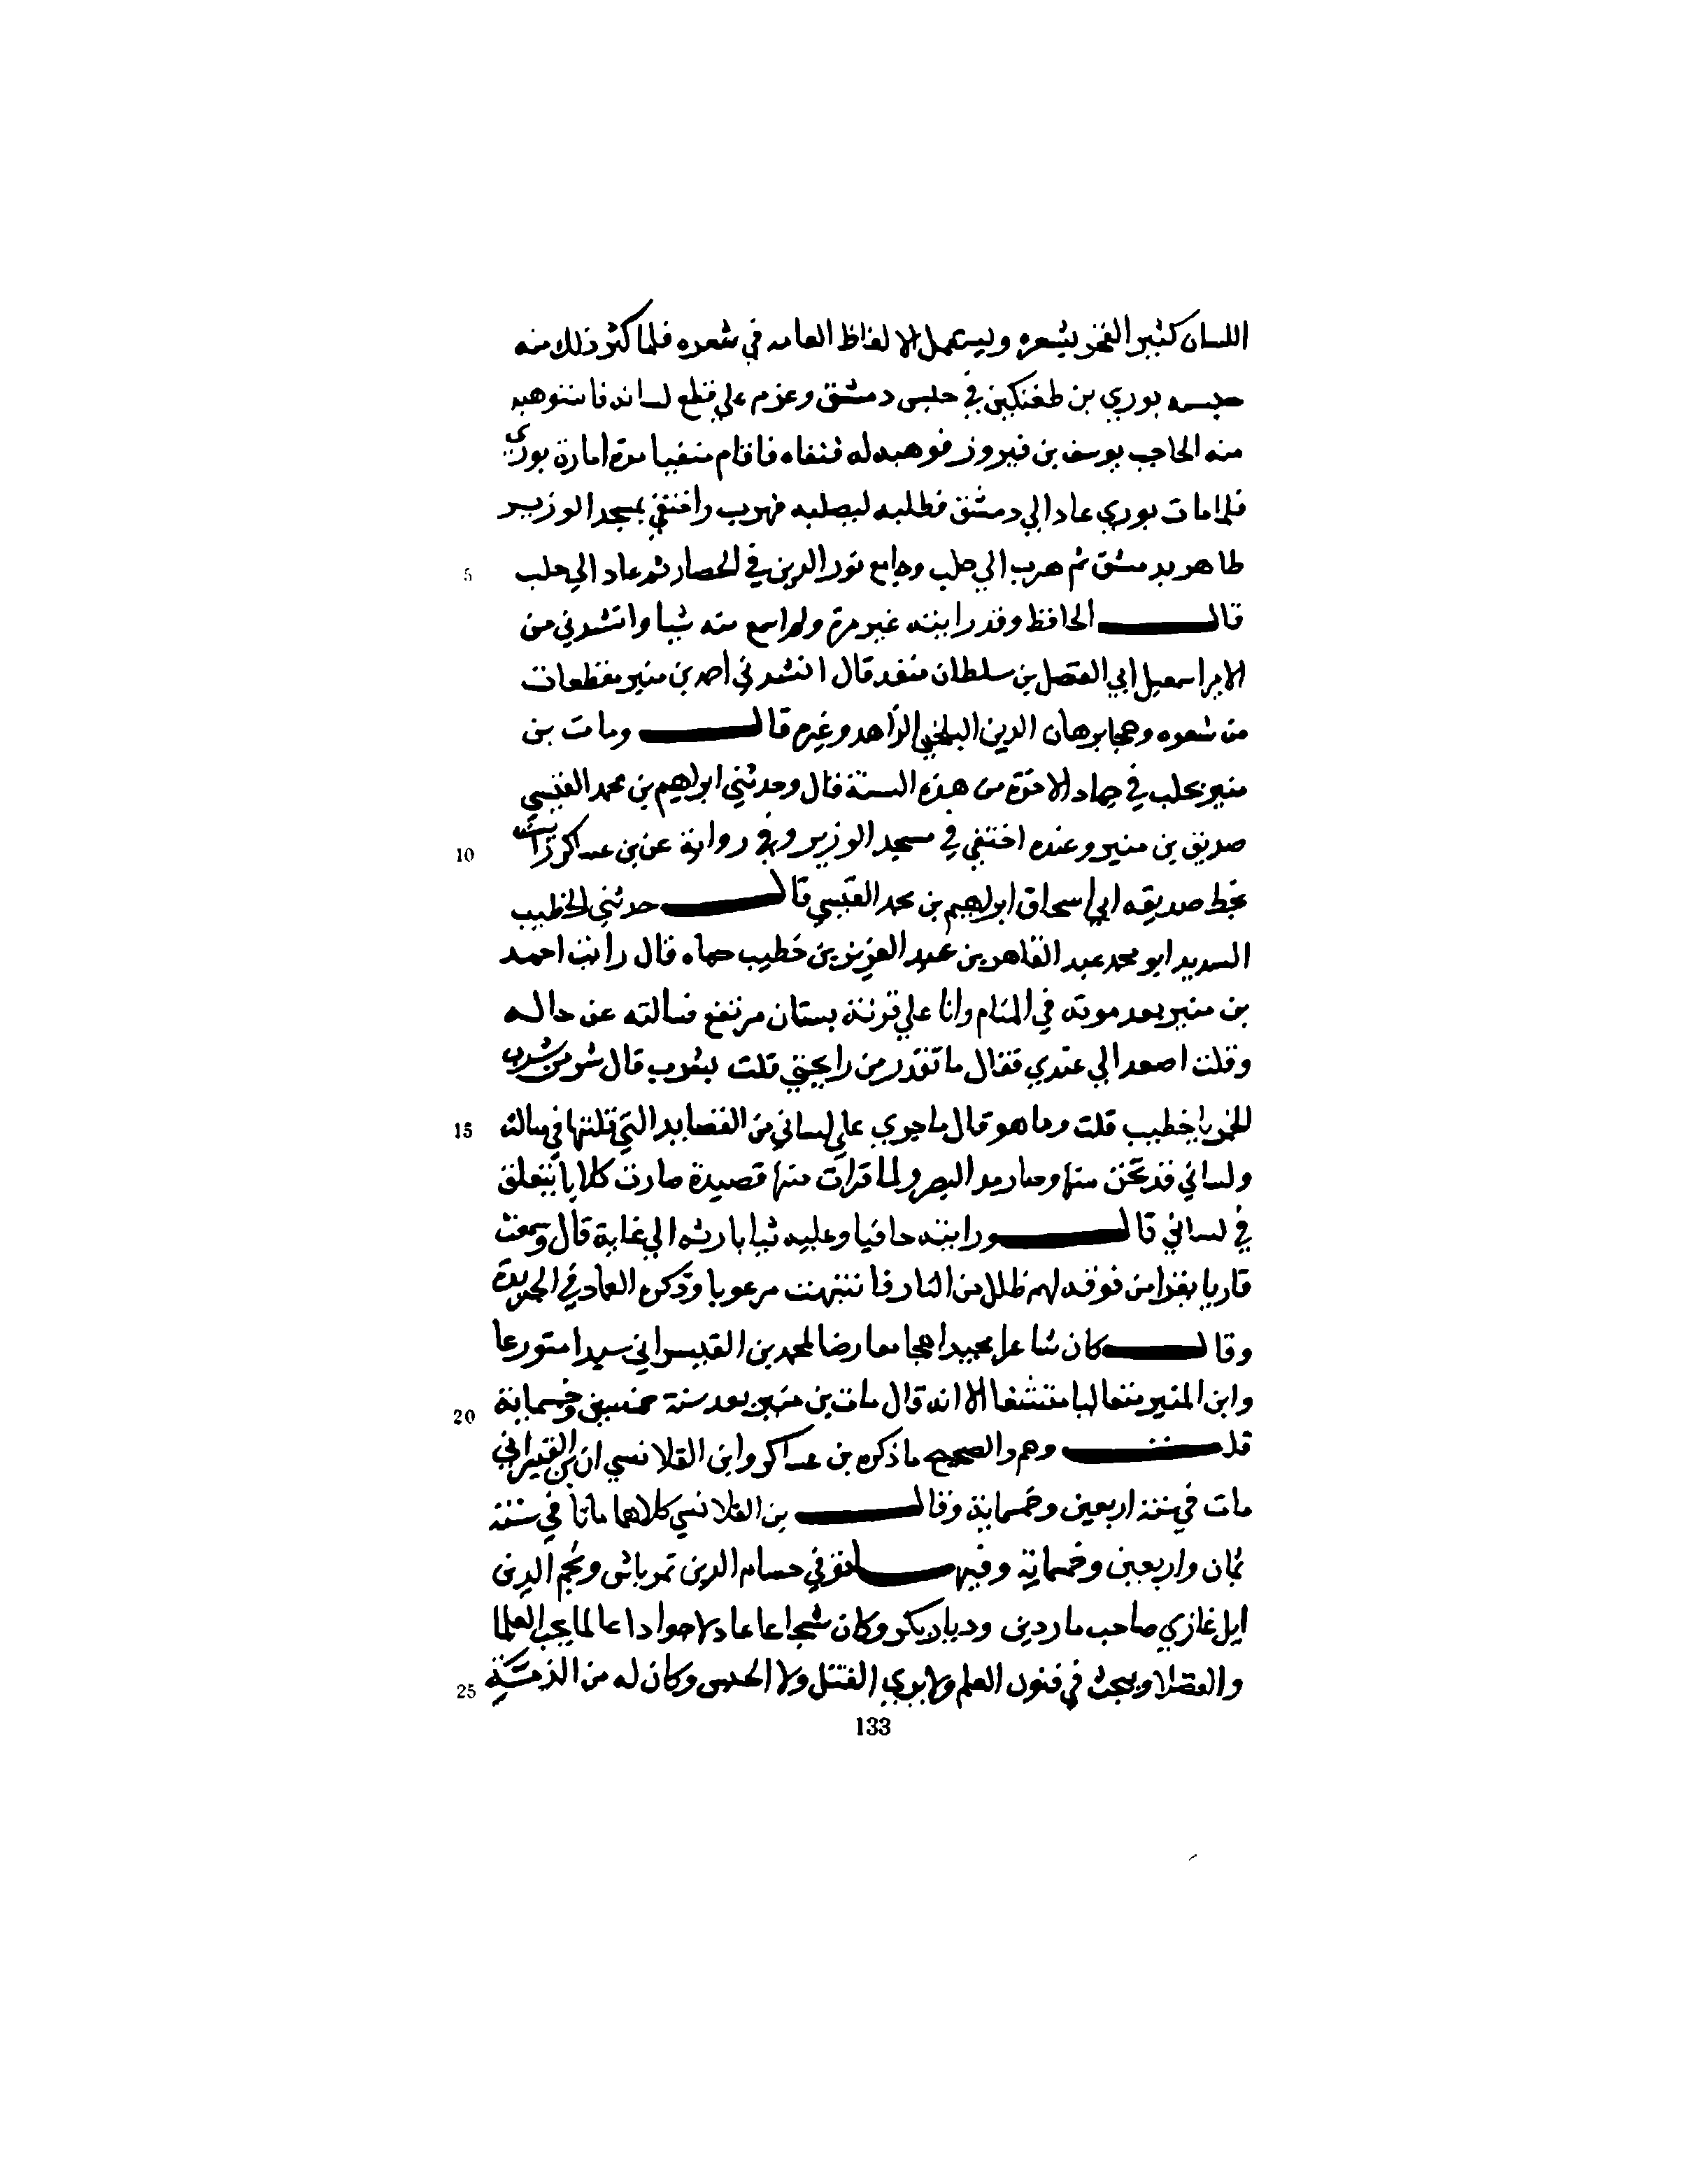 اللسان كثير الفخر بشعره ويستعمل الالفاظ العامه في شعره فلما كثر ذلك منه
حبسه بوري بن طغتكين في حبس دمشق وعزم علي قطع لسانه فاستوهبه
منه الحاجب يوسف بن فيروز فوهبه له فنفاه فاقام منفيا مدة امارة بوري
فلما مات بوري عاد الي دمشق فطلبه ليصلبه فهرب واختفي بمسجد الوزير
5 طاهر بدمشق ثم هرب الي حلب وجامع نور الدين في الحصار ثم عاد الي حلب
قال الحافظ وقد رايته غير مرة ولم اسمع منه شيا وانشدني من
الامير اسمعيل ابي الفضل بن سلطان منقد قال انشدني احمد بن منير مقطعات
من شعره وهجا برهان الدين البلخي الزاهد وغيره قال ومات بن
منير بحلب في جماد الاخرة من هذه السنة قال وحدثني ابراهيم بن محمد القيسي
10 صديق بن منير وعنده اختفي في مسجد الوزير وفي رواية عن بن عساكر رايت
بخط صديقه ابي اسحاق ابراهيم بن محمد القيسي قال حدثني الخطيب
السديد ابو محمد عبد القاهر بن عبد العزيز بن خطيب حماه قال رايت احمد
بن منير بعد موته في المنام وانا علي قرنة بستان مرتفع فسالته عن حاله
وقلت اصعد الي عندي فقال ما تقدر من رايحتي قلت بشرب قال شر من شرب
15 الخمر يا خطيب قلت وما هو قال ما جري علي لساني من القصايد التي قلتها في مثالب
ولساني قد تخن منها وصار مد البصر ولما قرات منها قصيدة صارت كلابا يتعلق
في لساني قال ورايته حافيا وعليه ثيابا رثه الي غاية قال وسمعت
قاريا يقرا من فوقه لهم ظلل من النار فانتبهت مرعوبا وذكره العماد في الخريدة
وقال كان شاعرا مجيدا هجا معارضا لمحمد بن القيسراني سيدا متورعا
20 وابن المنير متغاليا متشيعا الا انه قال مات بن منير بعد سنة خمسين وخمسماية
قلت وهم والصحيح ما ذكره بن عساكر وابن القلانسي ان بن القيسراني
مات في سنة اربعين وخمسماية وقال بن القلانسي كلاهما ماتا في سنة
ثمان واربعين وخمساية وفيها توفي حسام الدين تمرتاش ونجم الدين
ايل غازي صاحب ماردين وديار بكر وكان شجاعا عادلا جوادا عالما يحب العلما
25 والفضلا ويبحث في فنون العلم ولا يري القتل ولا الحبس وكان له من الذمة
133